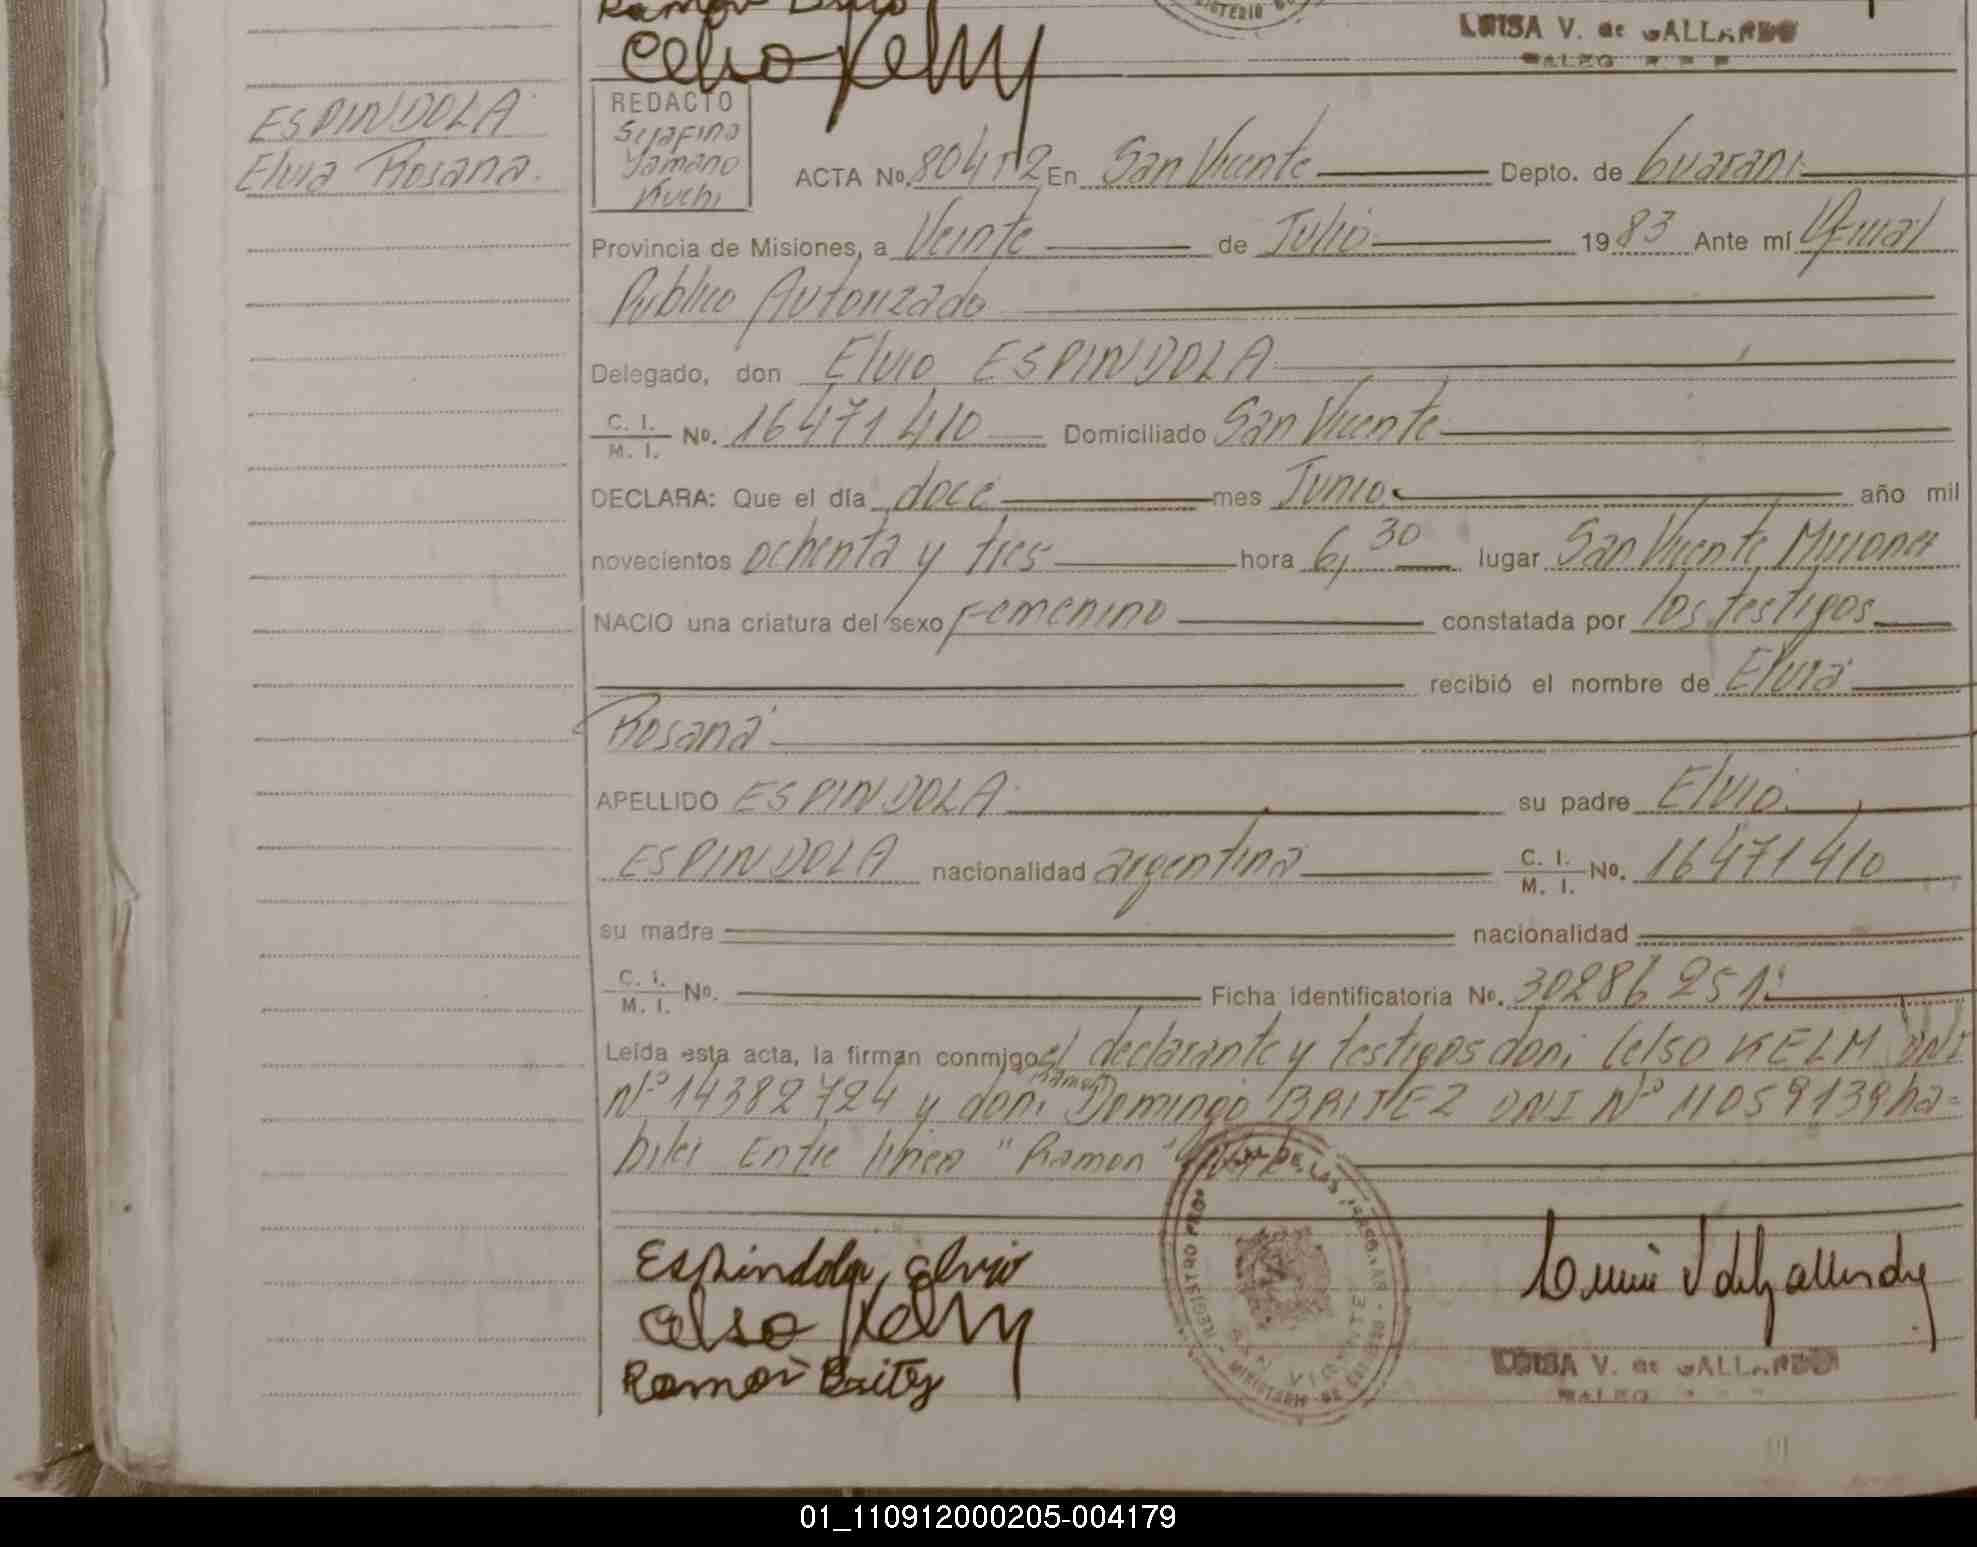 Celso Kelm
LUISA V. de GALLARDO
ESPINDOLA
Elvia Rosana.
REDACTO
Serafino
Yamano
Kuchi
ACTA No. 804 T2 En San Vicente Depto. de Guarani
Provincia de Misiones, a Veinte de Julio 1983 Ante mí Oficial
Publico Autorizado
Delegado, don Elvio ESPINDOLA
C. I. M. I. No. 16471410 Domiciliado San Vicente
DECLARA: Que el día doce mes Junio año mil
novecientos ochenta y tres hora 6,30 lugar San Vicente Misiones
NACIO una criatura del sexo Femenino constatada por los testigos
recibió el nombre de Elvia
Rosana
APELLIDO ESPINDOLA su padre Elvio
ESPINDOLA nacionalidad argentina C. I. M. I. No. 16471410
su madre nacionalidad
C. I. M. I. No. Ficha identificatoria No. 30286251
Leída esta acta, la firman conmigo el declarante y testigos don: Celso KELM DNI
Nº 14382724 y don: Ramon Domingo BRITEZ DNI Nº 11059139 ha=
biles Entre linea "Ramon"
Espindola, Elvio
Celso Kelm
Ramon Britez
SAN VICENTE
LUISA V. de GALLARDO
01_110912000205-004179